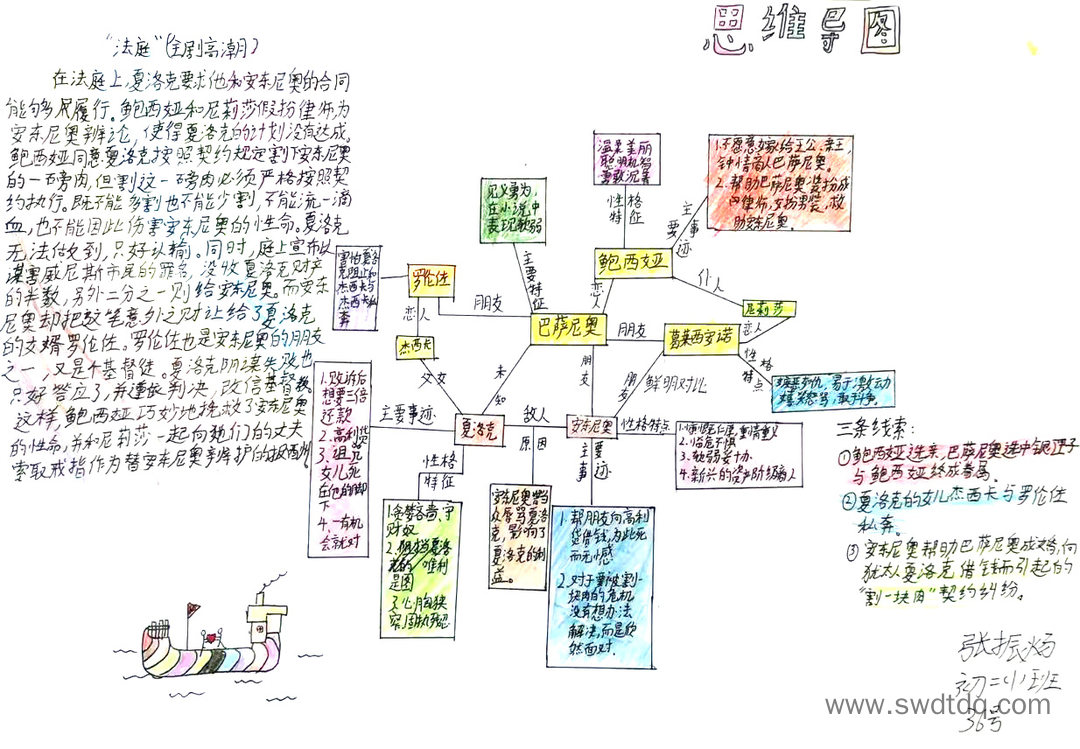 思维导图
"法庭"(全剧高潮)
在法庭上,夏洛克要求他和安东尼奥的合同
能够履行。鲍西娅和尼莉莎假扮律师为
安东尼奥辨论,使得夏洛克的计划没有达成。
鲍西娅同意夏洛克按照契约规定割下安东尼奥
的一磅肉,但割这一磅肉必须严格按照契
约执行。既不能多割也不能少割,不能流一滴
血,也不能因此伤害安东尼奥的性命。夏洛克
无法做到,只好认输。同时,庭上宣布以
谋害威尼斯市民的罪名,没收夏洛克财产
的半数,另外二分之一则给安东尼奥。而安东
尼奥却把这笔意外之财让给了夏洛克
的女婿罗伦佐。罗伦佐也是安东尼奥的朋友
之一,又是个基督徒。夏洛克阴谋失败也
只好答应了,并遵依判决,改信基督教。
这样,鲍西娅巧妙地挽救了安东尼奥
的性命,并和尼莉莎一起向她们的丈夫
索取戒指作为替安东尼奥辨护的报酬
温柔美丽
聪明机智
勇敢沉着
性格
特征
1.不愿意嫁给王公、亲王,
钟情商人巴萨尼奥。
2.帮助巴萨尼奥装扮成
律师,女扮男装,救
助安东尼奥。
主要
事迹
见义勇为,
在小说中
表现软弱
主要特征
鲍西娅
恋人
仆人
尼莉莎
恋人
害怕夏洛
克阻止和
杰西卡与
杰西卡私
奔
罗伦佐
朋友
恋人
杰西卡
父女
巴萨尼奥
朋友
葛莱西安诺
性格
特点
易于激动
朋友
朋友
鲜明对比
夏洛克
敌人
原因
安东尼奥
性格特点
2.临危不惧
3.软弱妥协
4.新兴的资产阶级商人
主要事迹
1.败诉后
想要三倍
还款
2.高利贷
3.诅咒
女儿死
在他的脚
下
4.一有机
会就对
性格
特征
1.贪婪吝啬、守
财奴
唯利
是图
3.心胸狭
窄,固执残忍
安东尼奥当
众辱骂夏洛
克,影响了
夏洛克的利
益。
主要
事迹
1.帮朋友向高利
贷借钱,为此死
而无憾
2.对于要被割一
块肉的危机
没有想办法
解决,而是欣
然面对.
三条线索:
①鲍西娅选亲,巴萨尼奥选中铅匣子
与鲍西娅终成眷属。
②夏洛克的女儿杰西卡与罗伦佐
私奔。
③安东尼奥帮助巴萨尼奥成婚,向
犹太人夏洛克借钱而引起的
"割一块肉"契约纠纷。
张振炀
初二小班
36号
www.swdtdq.com